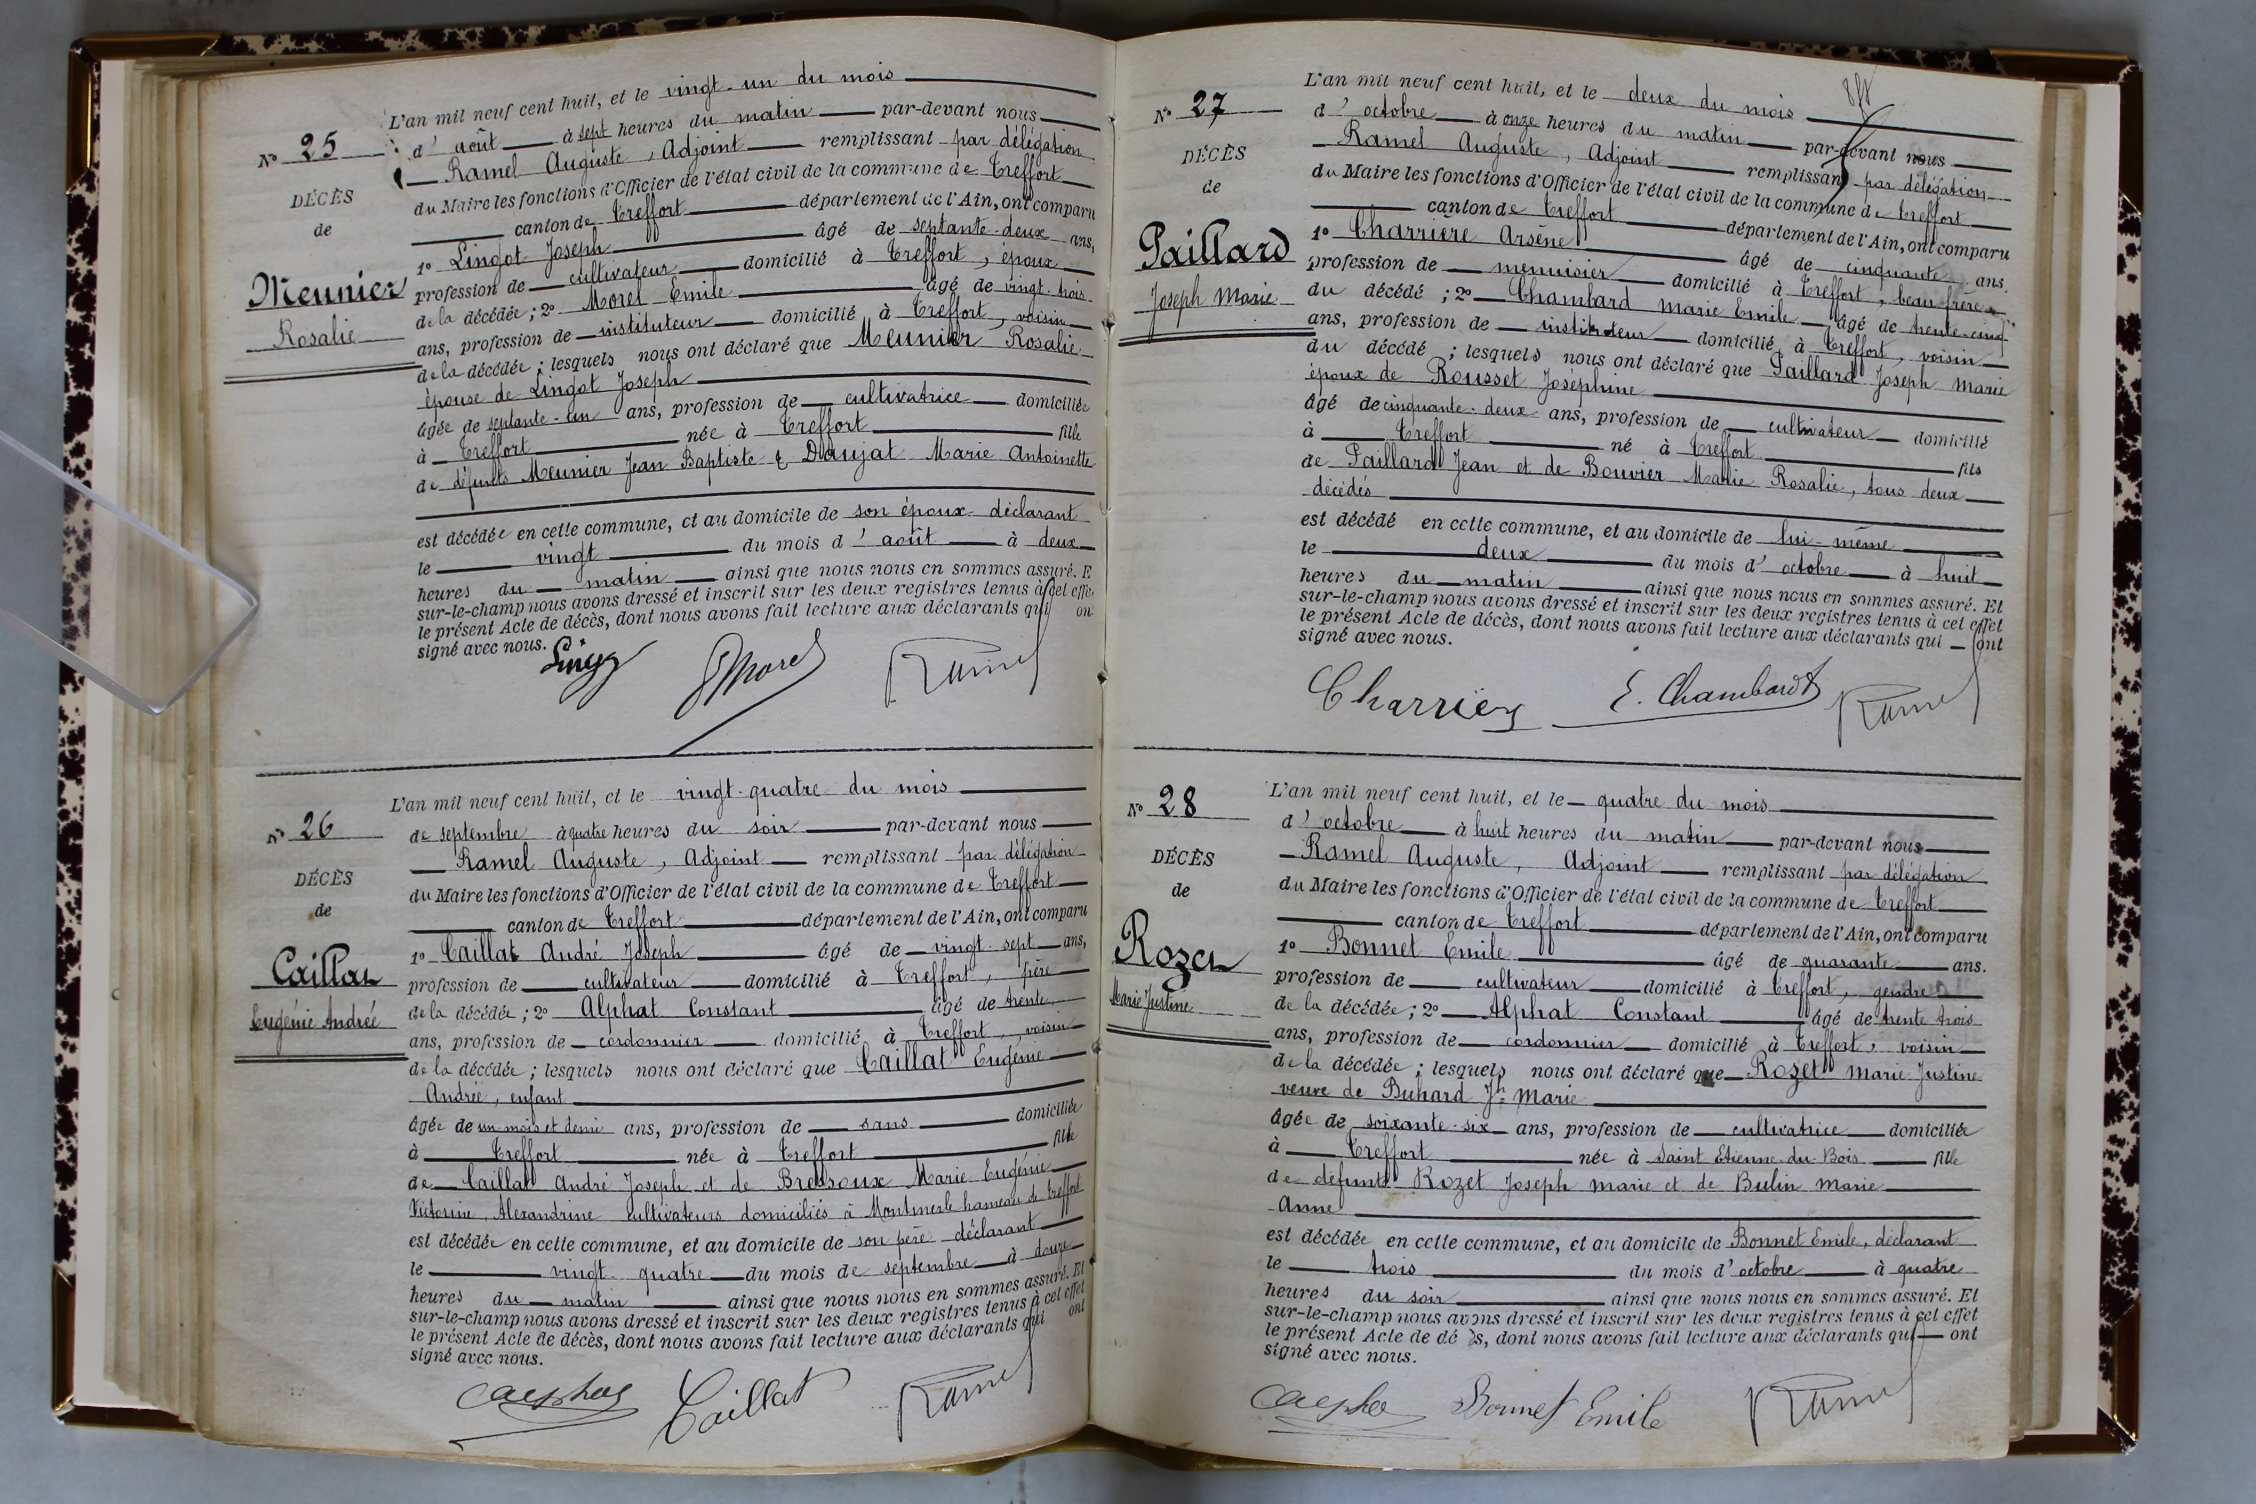 N° 25
DÉCÈS
de
Meunier
Rosalie
L'an mil neuf cent huit, et le vingt-un du mois
d'août à sept heures du matin par-devant nous
Ramel Auguste, Adjoint remplissant par délégation
du Maire les fonctions d'Officier de l'état civil de la commune de Treffort
canton de Treffort département de l'Ain, ont comparu
1° Lingot Joseph âgé de septante-deux ans,
profession de cultivateur domicilié à Treffort, époux
de la décédée; 2° Morel Emile âgé de vingt-trois
ans, profession de instituteur domicilié à Treffort, voisin
de la décédée; lesquels nous ont déclaré que Meunier Rosalie
épouse de Lingot Joseph
âgée de septante-un ans, profession de cultivatrice domiciliée
à Treffort née à Treffort fille
de défunts Meunier Jean Baptiste & Daujat Marie Antoinette
est décédée en cette commune, et au domicile de son époux déclarant
le vingt du mois d'août à deux
heures du matin ainsi que nous nous en sommes assuré. E
sur-le-champ nous avons dressé et inscrit sur les deux registres tenus à cet effe
le présent Acte de décès, dont nous avons fait lecture aux déclarants qui on
signé avec nous.
E Morel Ramel
N° 26
DÉCÈS
de
Caillat
Eugénie Andrée
L'an mil neuf cent huit, et le vingt-quatre du mois
de septembre à quatre heures du soir par-devant nous
Ramel Auguste, Adjoint remplissant par délégation
du Maire les fonctions d'Officier de l'état civil de la commune de Treffort
canton de Treffort département de l'Ain, ont comparu
1° Caillat André Joseph âgé de vingt-sept ans,
profession de cultivateur domicilié à Treffort, père
de la décédée; 2° Alphat Constant âgé de trente
ans, profession de cordonnier domicilié à Treffort, voisin
de la décédée; lesquels nous ont déclaré que Caillat Eugénie
Andrée, enfant
âgée de un mois et demi ans, profession de sans domiciliée
à Treffort née à Treffort fille
de Caillat André Joseph et de Bressoux Marie Eugénie
Victorine Alexandrine cultivateurs domiciliés à Montmerle hameau de Treffort
est décédée en cette commune, et au domicile de son père déclarant
le vingt-quatre du mois de septembre à douze
heures du matin ainsi que nous nous en sommes assuré. Et
sur-le-champ nous avons dressé et inscrit sur les deux registres tenus à cet effet
le présent Acte de décès, dont nous avons fait lecture aux déclarants qui ont
signé avec nous.
Caillat Ramel
N° 27
DÉCÈS
de
Paillard
Joseph Marie
L'an mil neuf cent huit, et le deux du mois
d'octobre à onze heures du matin par-devant nous
Ramel Auguste, Adjoint remplissant par délégation
du Maire les fonctions d'Officier de l'état civil de la commune de Treffort
canton de Treffort département de l'Ain, ont comparu
1° Charrière Arsène âgé de cinquante ans.
profession de menuisier domicilié à Treffort, beau-frère
du décédé; 2° Chambard Marie Emile âgé de trente-cinq
ans, profession de instituteur domicilié à Treffort, voisin
du décédé; lesquels nous ont déclaré que Paillard Joseph Marie
époux de Rousset Joséphine
âgé de cinquante-deux ans, profession de cultivateur domicilié
à Treffort né à Treffort fils
de Paillard Jean et de Bouvier Marie Rosalie, tous deux
décédés
est décédé en cette commune, et au domicile de lui-même
le deux du mois d'octobre à huit
heures du matin ainsi que nous nous en sommes assuré. Et
sur-le-champ nous avons dressé et inscrit sur les deux registres tenus à cet effet
le présent Acte de décès, dont nous avons fait lecture aux déclarants qui ont
signé avec nous.
Charrière E. Chambard Ramel
N° 28
DÉCÈS
de
Rozet
Marie Justine
L'an mil neuf cent huit, et le quatre du mois
d'octobre à huit heures du matin par-devant nous
Ramel Auguste, Adjoint remplissant par délégation
du Maire les fonctions d'Officier de l'état civil de la commune de Treffort
canton de Treffort département de l'Ain, ont comparu
1° Bonnet Emile âgé de quarante ans.
profession de cultivateur domicilié à Treffort, gendre
de la décédée; 2° Alphat Constant âgé de trente trois
ans, profession de cordonnier domicilié à Treffort, voisin
de la décédée; lesquels nous ont déclaré que Rozet Marie Justine
veuve de Buhard Jh Marie
âgée de soixante-six ans, profession de cultivatrice domiciliée
à Treffort née à Saint Etienne-du-Bois fille
de défunts Rozet Joseph Marie et de Bulin Marie
Anne
est décédée en cette commune, et au domicile de Bonnet Emile, déclarant
le trois du mois d'octobre à quatre
heures du soir ainsi que nous nous en sommes assuré. Et
sur-le-champ nous avons dressé et inscrit sur les deux registres tenus à cet effet
le présent Acte de dé s, dont nous avons fait lecture aux déclarants qui ont
signé avec nous.
Bonnet Emile Ramel